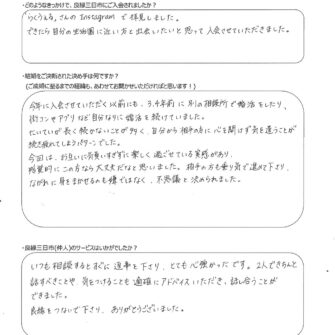 ・どのようなきっかけで、良縁三日市にご入会されましたか？
らくうぇる。さんの Instagram で拝見しました。
できたら自分の生活圏に近い方と出会いたいと思って入会させていただきました。
・結婚をご決断された決め手は何ですか？
（ご成婚に至るまでの経緯も、あわせてお聞かせいただければと思います！）
今年に入会させていただく以前にも、3、4年前に別の相談所で婚活をしたり、
街コンやアプリなど自分なりに婚活を続けていました。
たいていが長く続かないことが多く、自分から相手の方に心を開けず気を遣うことが
続き疲れてしまうパターンでした。
今回は、お互いに気負いすぎずに楽しく過ごせている実感があり、
感覚的にこの方なら大丈夫だなと思いました。相手の方も乗り気で進めて下さり、
ながれに身をまかせるのも嫌ではなく、不思議と決められました。
・良縁三日市(仲人)のサービスはいかがでしたか？
いつも相談するとすぐに返事を下さり、とても心強かったです。2人できちんと
話すべきことや、気をつけることも適確にアドバイスいただき、話し合うことが
できました。
良縁をつないで下さり、ありがとうございました。